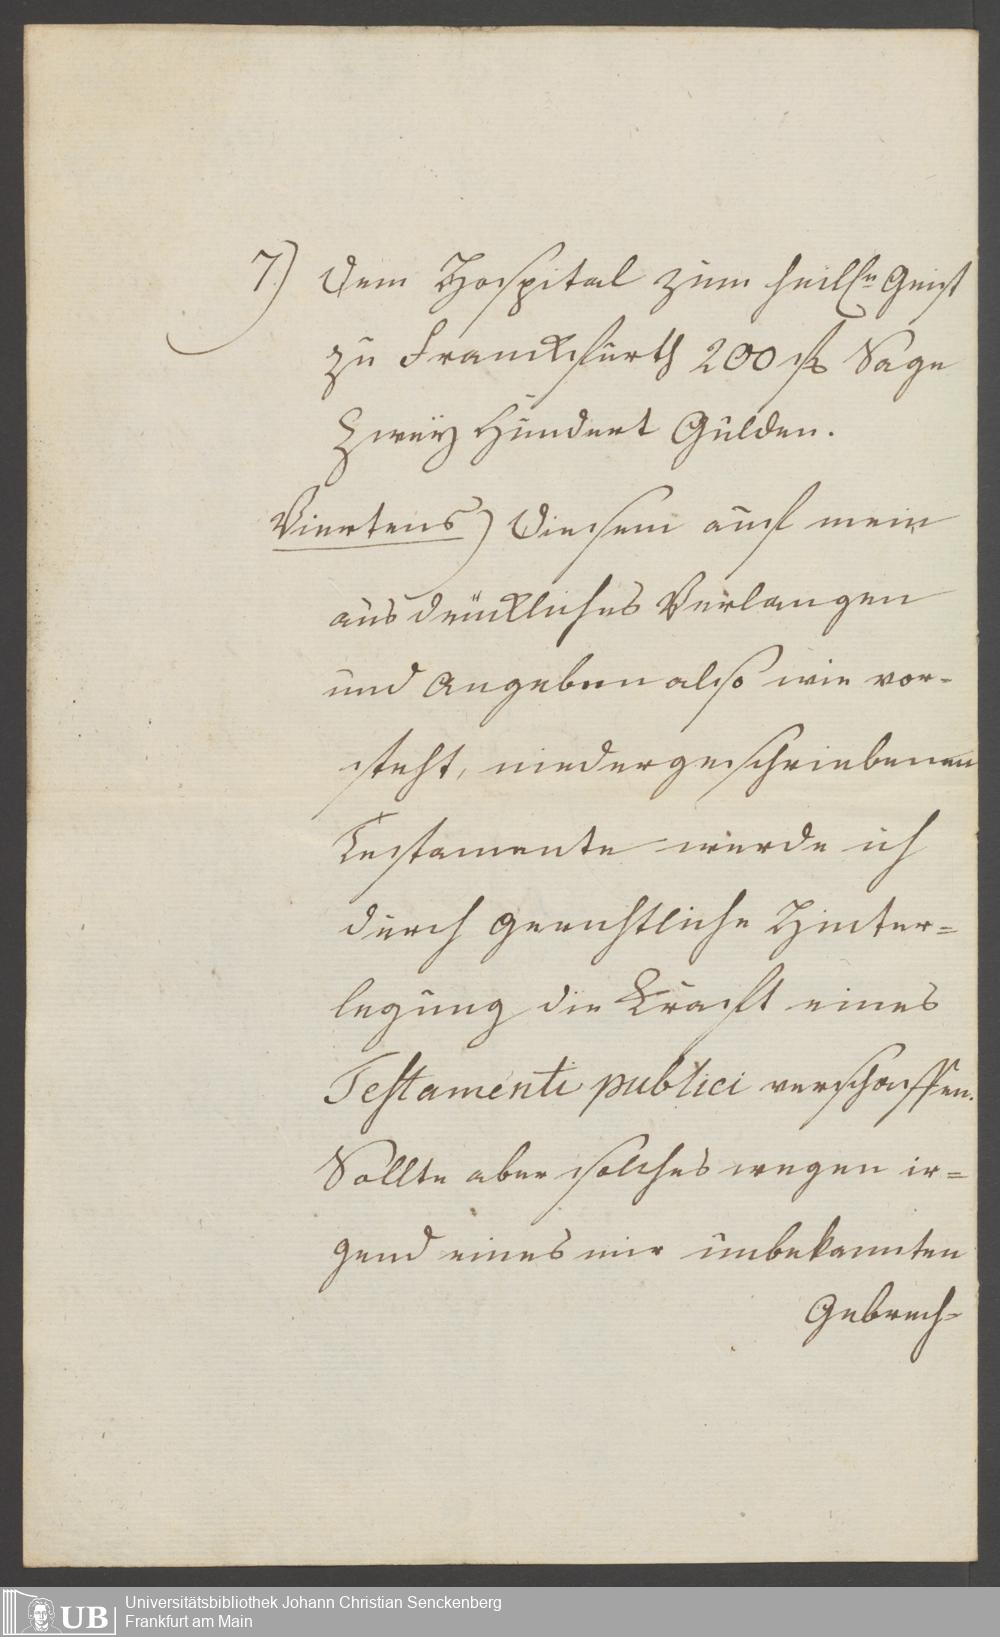 7.) Dem Hospital zum heil[n] Geist
zu Franckfurth 200 fl Sage
Zweÿ Hundert Gulden.
Viertens) Diesem auf mein
ausdrückliches Verlangen
und Angeben also wie vor-
steht, niedergeschriebenen
Testamente werde ich
durch gerichtliche Hinter=
legung die Kraft eines
Testamenti publici verschaffen.
Sollte aber solches wegen ir=
gend eines mir unbekannten
Gebrech-
UB
Universitätsbibliothek Johann Christian Senckenberg
Frankfurt am Main